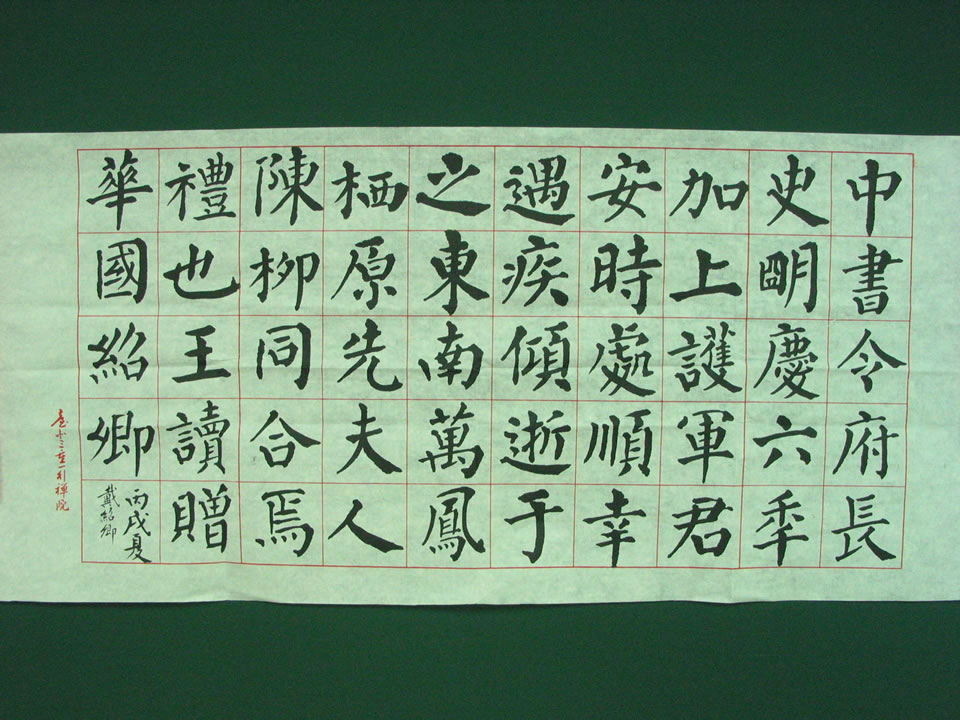 中書令府長
史明慶六秊
加上護軍君
安時處順幸
遇疾傾逝于
之東南萬鳳
栖原先夫人
陳柳同合焉
禮也王讀贈
華國紹卿
丙戌夏
戴紹卿